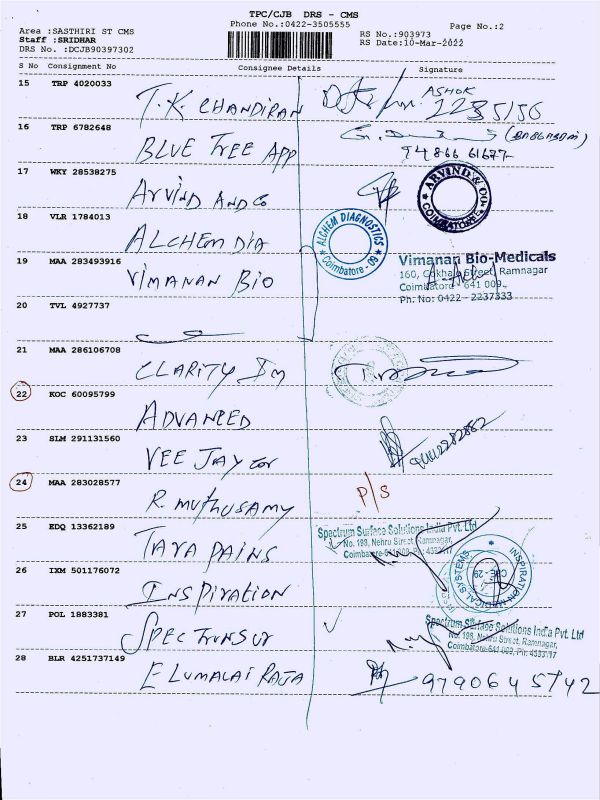 TPC/CJB DRS - CMS
Phone No.:0422-3505555
Page No.:2
Area : SASTHIRI ST CMS
Staff :SRIDHAR
DRS No. :DCJB90397302
RS No.:903973
RS Date:10-Mar-2022
S No Consignment No Consignee Details Signature
15 TRP 4020033 T.K. CHANDIRAN ASHOK
16 TRP 6782648 BLUE TREE APP
94866 61677
17 WKY 28538275 ARVIND AND Co ARVIND & CO COIMBATORE
18 VLR 1784013 ALCHEM DIA ALCHEM DIAGNOSTICS Coimbatore - 09
19 MAA 283493916 VIMANAN BIO Vimanan Bio-Medicals
160, Gokhale Street, Ramnagar
Coimbatore - 641 009.
Ph. No: 0422 - 2237333
20 TVL 4927737
21 MAA 286106708 CLARITY
22 KOC 60095799 ADVANCED
23 SLM 291131560 VEE JAY
24 MAA 283028577 R. MUTHUSAMY P/S
25 EDQ 13362189 TARA PAINS Spectrum Surface Solutions India Pvt. Ltd
No. 198, Nehru Street, Ramnagar,
Coimbatore-641 009, Ph:
26 IXM 501176072 INSPIRATION INSPIRATION MEDICAL SYSTEMS
27 POL 1883381 SPECTRUNSUR Spectrum Surface Solutions India Pvt. Ltd
No. 198, Nehru Street, Ramnagar,
Coimbatore-641 009, Ph:
28 BLR 4251737149 ELUMALAI RAJA 9790645742